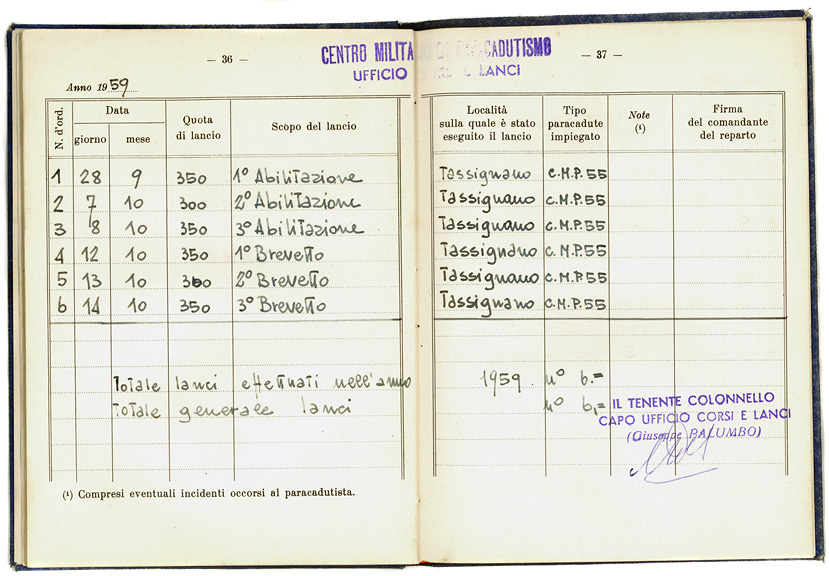 — 36 —
CENTRO MILITARE DI PARACADUTISMO
UFFICIO CORSI E LANCI
— 37 —
Anno 1959
N. d'ord. | Data | Quota di lancio | Scopo del lancio | Località sulla quale è stato eseguito il lancio | Tipo paracadute impiegato | Note (¹) | Firma del comandante del reparto
giorno | mese
1 28 9 350 1° Abilitazione Tassignano C.M.P. 55
2 7 10 300 2° Abilitazione Tassignano C.M.P. 55
3 8 10 350 3° Abilitazione Tassignano C.M.P. 55
4 12 10 350 1° Brevetto Tassignano C.M.P. 55
5 13 10 300 2° Brevetto Tassignano C.M.P. 55
6 14 10 350 3° Brevetto Tassignano C.M.P. 55
Totale lanci effettuati nell'anno 1959. n° 6.=
Totale generale lanci n° 6,=
IL TENENTE COLONNELLO
CAPO UFFICIO CORSI E LANCI
(Giuseppe PALUMBO)
(¹) Compresi eventuali incidenti occorsi al paracadutista.